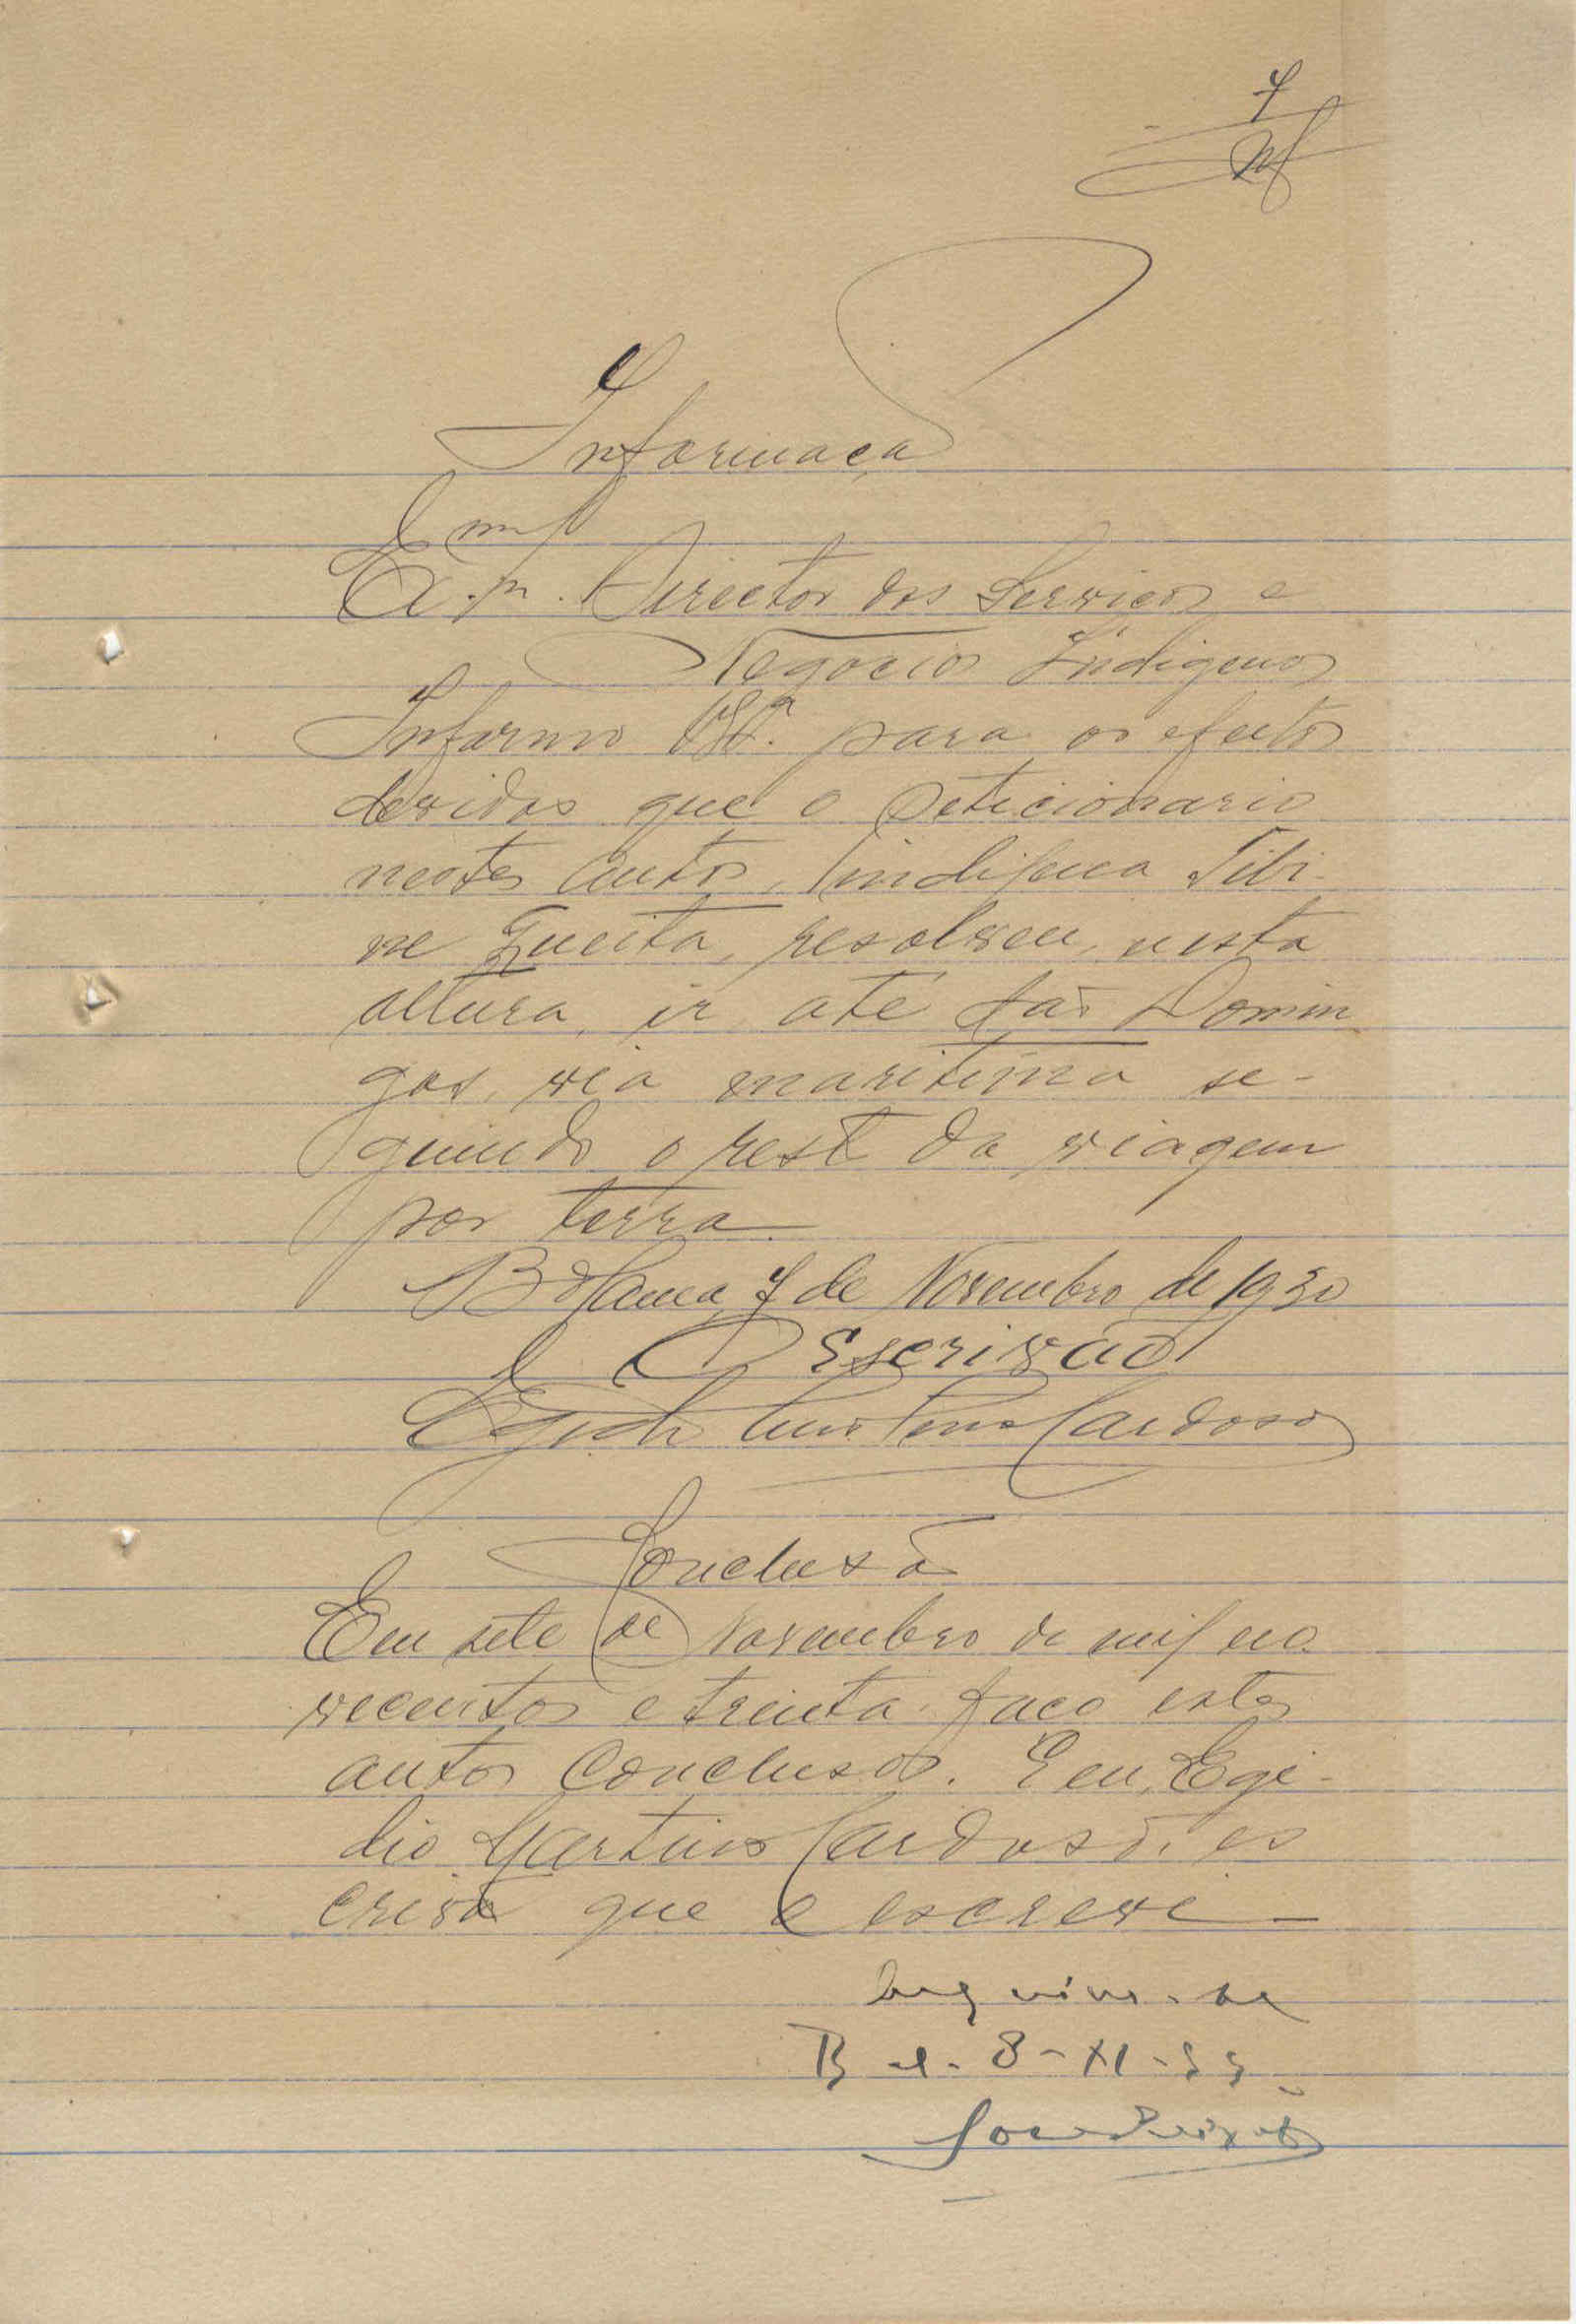 7
Informação
Ex.mo Director dos Serviços e
Negocios Indigenas
Informo V. Ex.ª para os efeitos
devidos que o peticionario
nestes autos, indigena Tibi-
ne Queita, resolveu, nesta
altura, ir até São Domin
gos, via maritima se-
guindo o resto da viagem
por terra.
Bolama, 7 de Novembro de 1930
O Escrivão
Cardoso
Conclusão
Em sete de Novembro de mil no
vecentos e trinta faço estes
autos conclusos. E eu, Egi-
dio Martins Cardoso, es
crivão que o escrevi
Arquive-se
B el. 8-XI-